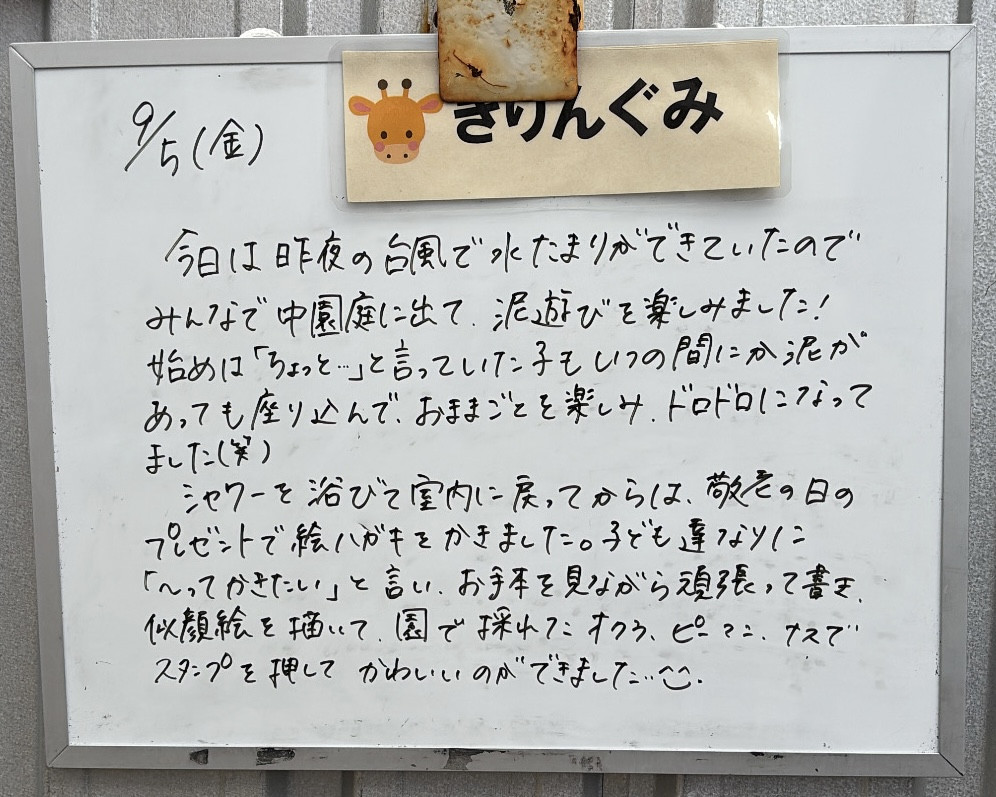 きりんぐみ
9/5(金)
今日は昨夜の台風で水たまりができていたので
みんなで中園庭に出て、泥遊びを楽しみました!
始めは「ちょっと…」と言っていた子もいつの間にか泥が
あっても座り込んで、おままごとを楽しみ、ドロドロになって
ました(笑)
シャワーを浴びて室内に戻ってからは、敬老の日の
プレゼントで絵ハガキをかきました。子ども達なりに
「〜ってかきたい」と言い、お手本を見ながら頑張って書き、
似顔絵を描いて、園で採れたオクラ、ピーマン、ナスで
スタンプを押してかわいいのができました…